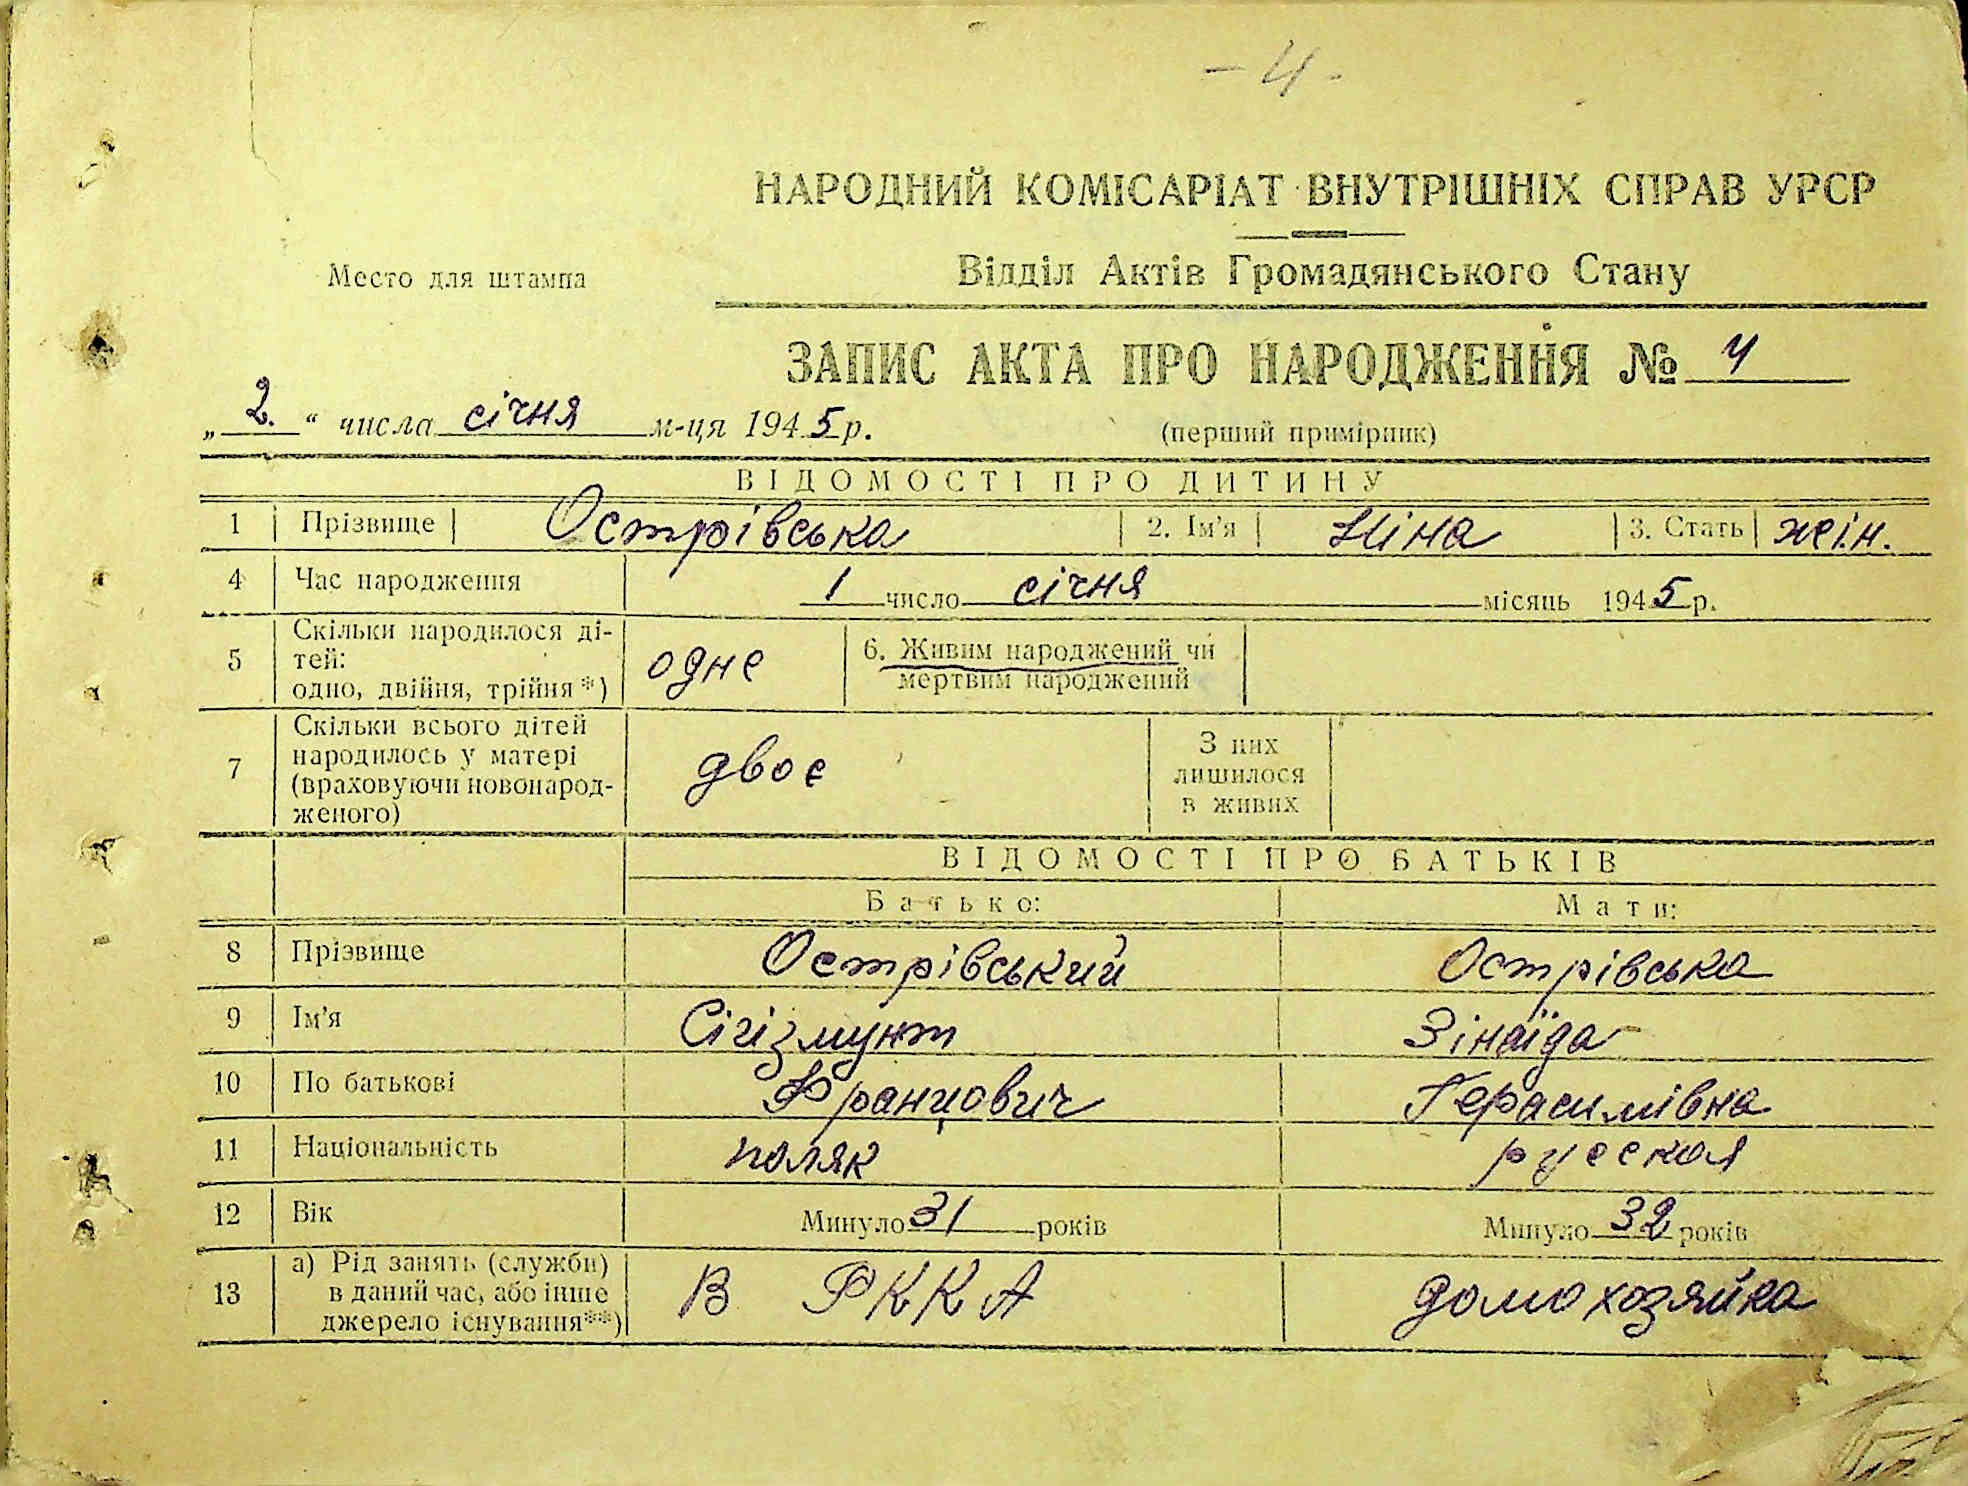 - 4 -
НАРОДНИЙ КОМІСАРІАТ ВНУТРІШНІХ СПРАВ УРСР
Место для штампа
Відділ Актів Громадянського Стану
ЗАПИС АКТА ПРО НАРОДЖЕННЯ № 4
„ 2. “ числа січня м-ця 1945 р.
(перший примірник)
ВІДОМОСТІ ПРО ДИТИНУ
1 Прізвище Острівська 2. Ім'я Ніна 3. Стать жін.
4 Час народження 1 число січня місяць 1945 р.
5 Скільки народилося ді-
тей:
одно, двійня, трійня *) одне 6. Живим народжений чи
мертвим народжений
7 Скільки всього дітей
народилось у матері
(враховуючи новонарод-
женого) двоє З них
лишилося
в живих
ВІДОМОСТІ ПРО БАТЬКІВ
Батько: Мати:
8 Прізвище Острівський Острівська
9 Ім'я Сігізмунт Зінаїда
10 По батькові Францович Герасимівна
11 Національність поляк русская
12 Вік Минуло 31 років Минуло 32 років
13 а) Рід занять (служби)
в даний час, або інше
джерело існування**) В РККА домохозяйка